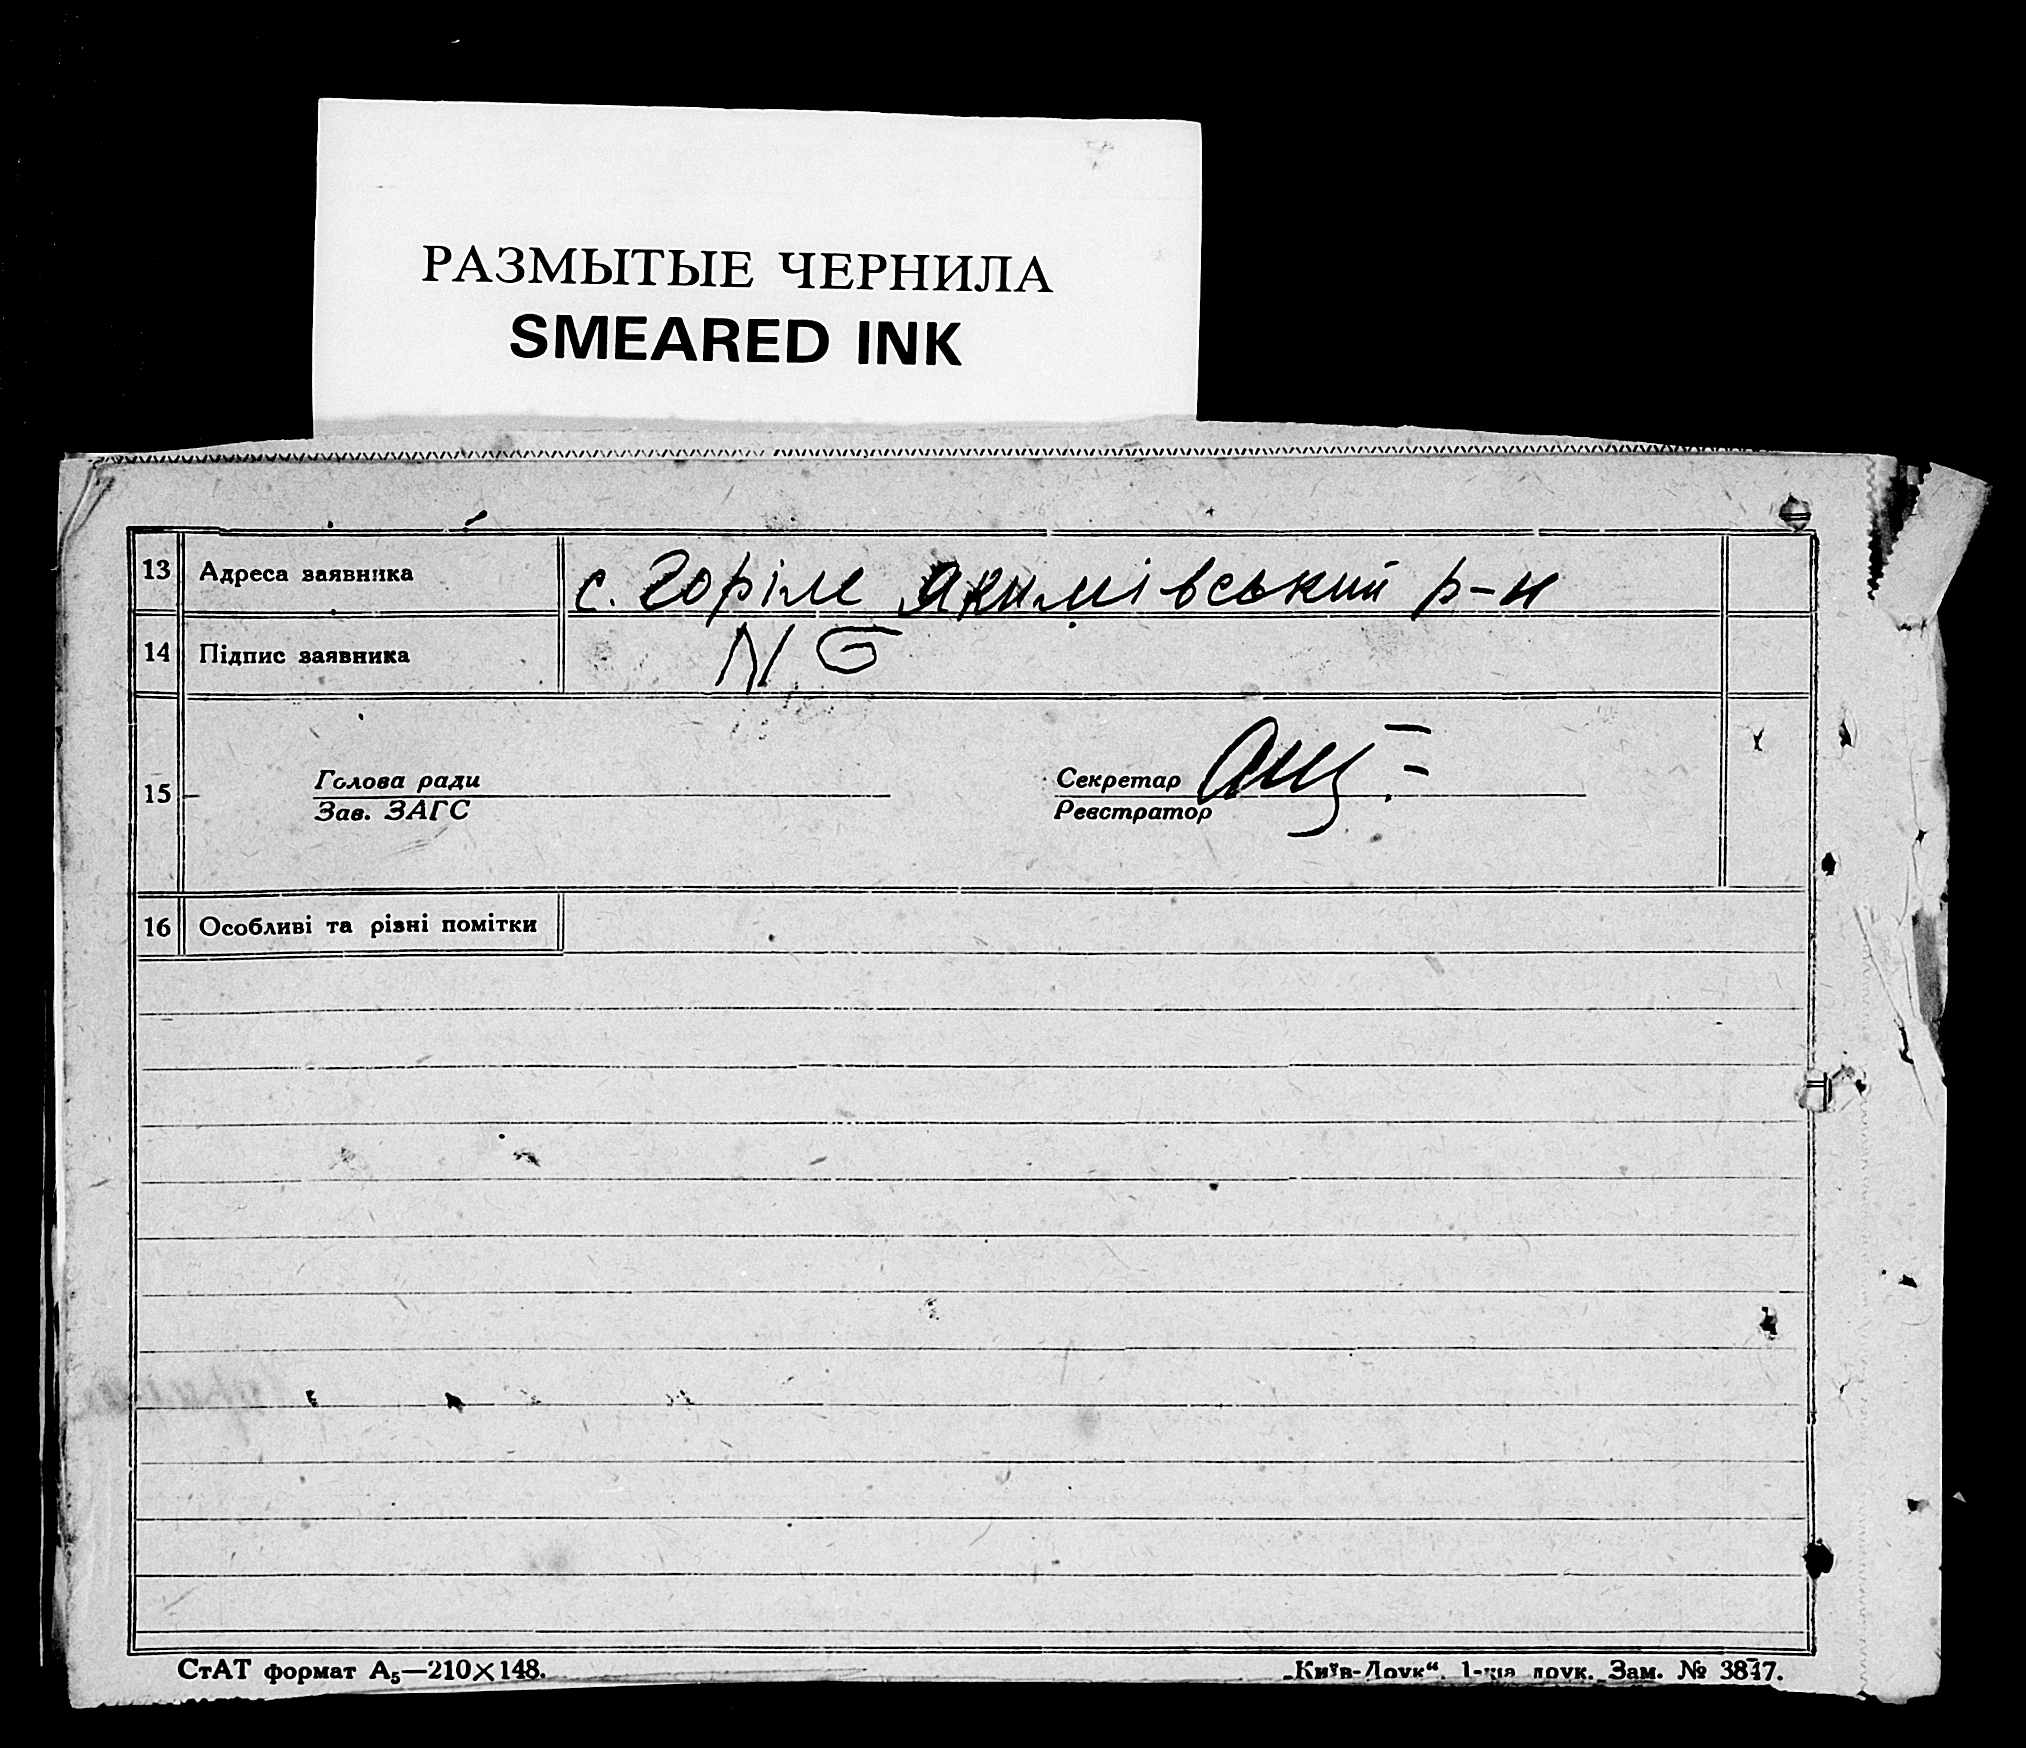 РАЗМЫТЫЕ ЧЕРНИЛА
SMEARED INK
13 Адреса заявника с. Горіле Якимівський р-н
14 Підпис заявника
15 Голова ради Секретар
Зав. ЗАГС Реєстратор
16 Особливі та різні помітки
СтАТ формат А₅—210×148. „Київ-Друк“, 1-ша друк. Зам. №